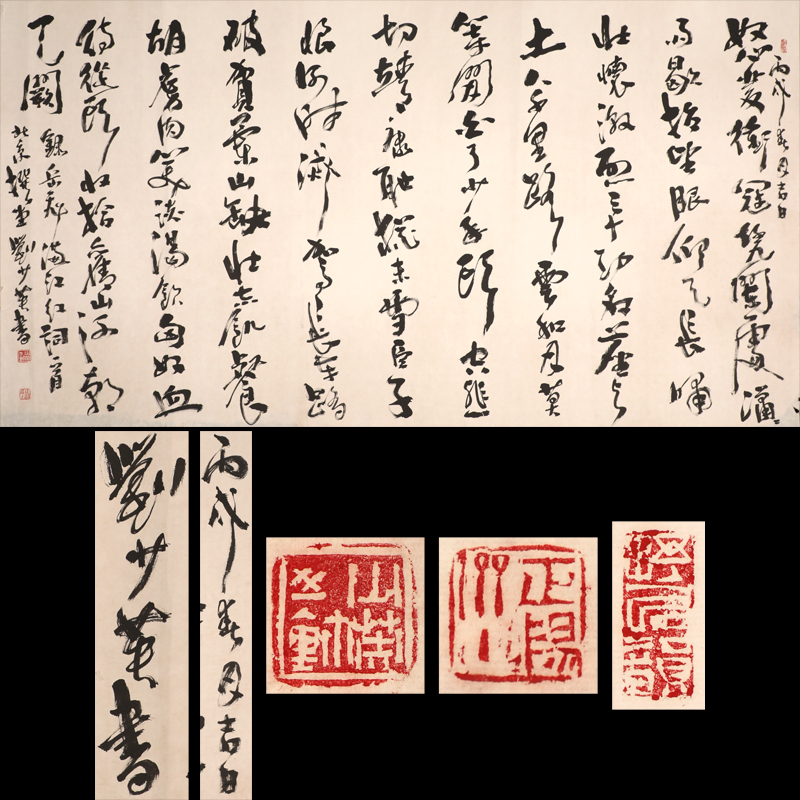 丙戌春月吉日
怒髮衝冠凭闌處瀟
雨歇抬望眼仰天長嘯
壯懷激烈三十功名塵与
土八千里路雲和月莫
等閒白了少年頭空悲
切靖康恥猶未雪臣子
恨何時滅駕長車踏
破賀蘭山缺壯志飢餐
胡虜肉笑談渴飲匈奴血
待從頭收拾舊山河朝
天闕
錄岳飛滿江紅詞一首
北京堂劉少英書
劉少英書
丙戌春月吉日